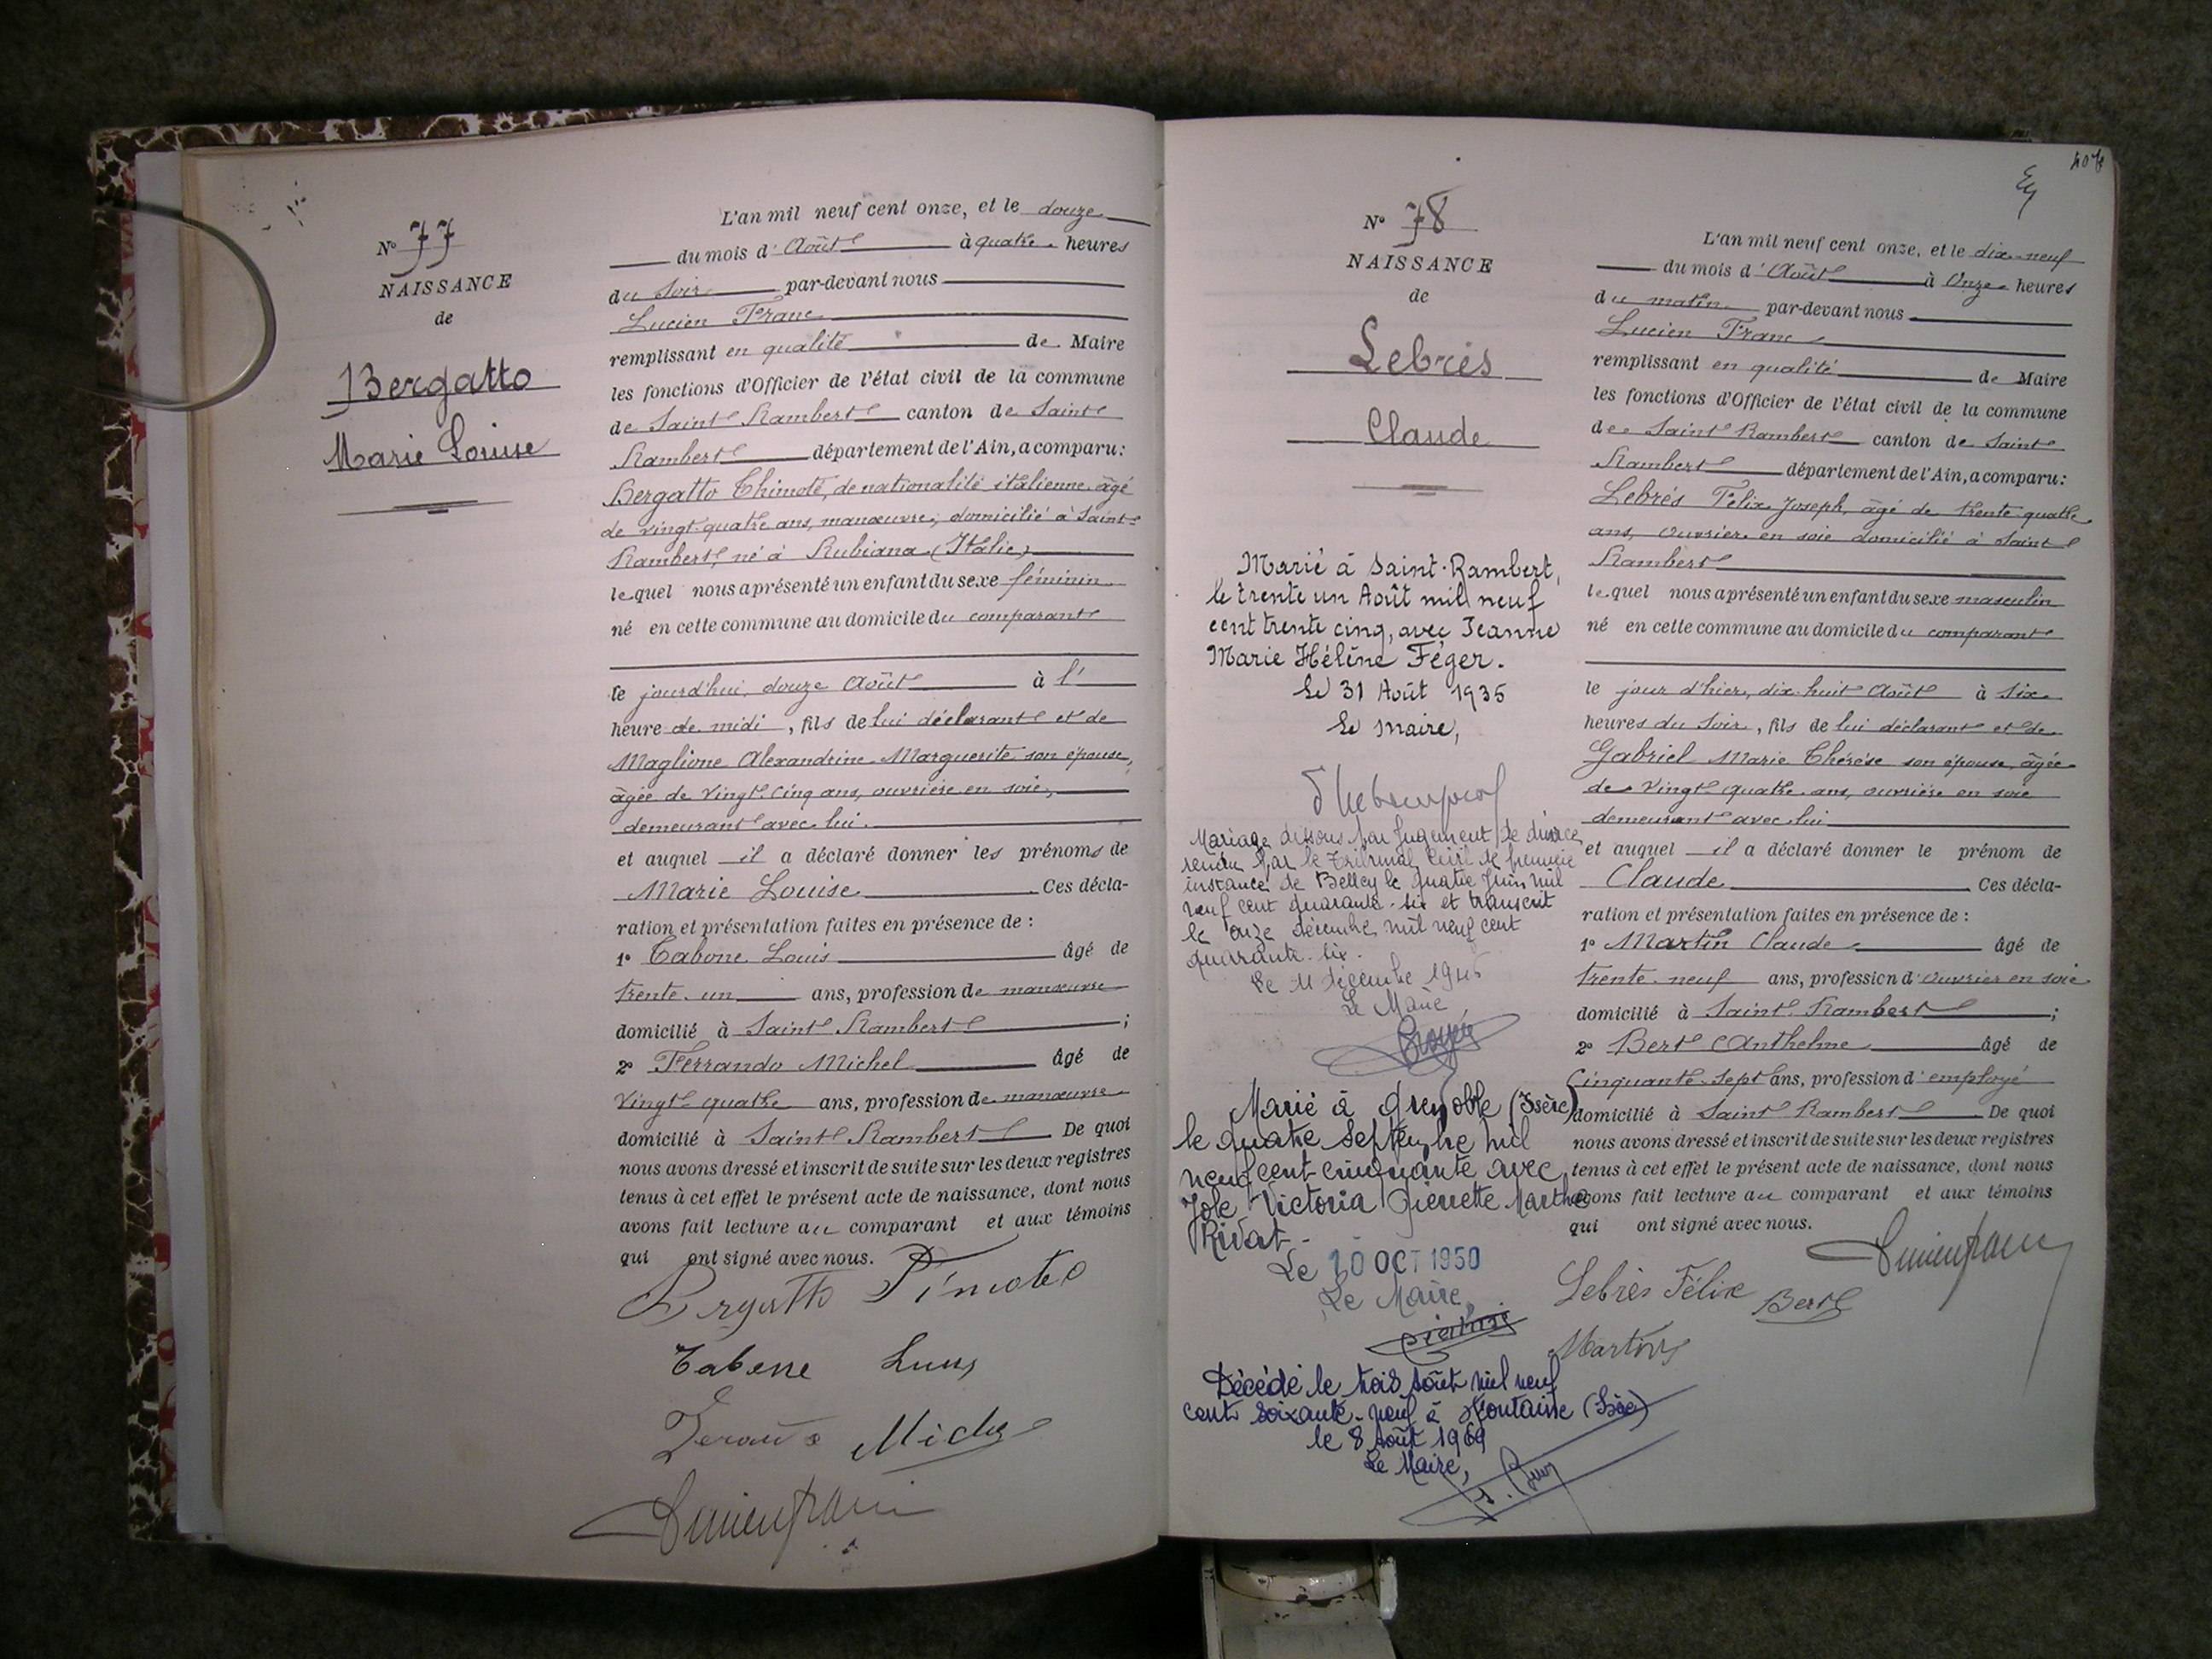 N° 77
NAISSANCE
de
Bergatto
Marie Louise
L'an mil neuf cent onze, et le douze
du mois d'Août à quatre heures
du soir par-devant nous
Lucien Franc
remplissant en qualité de Maire
les fonctions d'Officier de l'état civil de la commune
de Saint Rambert canton de Saint
Rambert département de l'Ain, a comparu:
Bergatto Thimoté, de nationalité italienne âgé
de vingt-quatre ans, manœuvre, domicilié à Saint
Rambert, né à Rubiana (Italie)
lequel nous a présenté un enfant du sexe féminin
né en cette commune au domicile du comparant
le jourd'hui, douze Août à l'
heure de midi, fils de lui déclarant et de
Maglione Alexandrine Marguerite son épouse,
âgée de vingt-cinq ans, ouvrière en soie,
demeurant avec lui.
et auquel il a déclaré donner les prénoms de
Marie Louise Ces décla-
ration et présentation faites en présence de :
1° Tabone Louis âgé de
trente-un ans, profession de manœuvre
domicilié à Saint Rambert ;
2° Ferrando Michel âgé de
vingt-quatre ans, profession de manœuvre
domicilié à Saint Rambert De quoi
nous avons dressé et inscrit de suite sur les deux registres
tenus à cet effet le présent acte de naissance, dont nous
avons fait lecture au comparant et aux témoins
qui ont signé avec nous.
Bergatto Timoteo
N° 78
NAISSANCE
de
Lebrés
Claude
Marié à Saint-Rambert,
le trente un Août mil neuf
cent trente cinq, avec Jeanne
Marie Hélène Féger.
Le 31 Août 1935
Le Maire,
Mariage dissous par jugement de divorce
rendu par le Tribunal Civil de première
instance de Belley le quatre Juin mil
neuf cent quarante-six et transcrit
le onze décembre mil neuf cent
quarante-six.
Le 11 décembre 1946
Le Maire
Marié à Grenoble (Isère)
le quatre septembre mil
neuf cent cinquante avec
Victoria Pierrette Marthe
Rivat.
Le 10 OCT 1950
Le Maire,
Décédé le trois août mil neuf
cent soixante-neuf à (Isère)
le 8 Août 1969
Le Maire,
L'an mil neuf cent onze, et le dix-neuf
du mois d'Août à Onze heures
du matin par-devant nous
Lucien Franc
remplissant en qualité de Maire
les fonctions d'Officier de l'état civil de la commune
de Saint Rambert canton de Saint
Rambert département de l'Ain, a comparu:
Lebrés Félix Joseph, âgé de trente-quatre
ans, ouvrier en soie domicilié à Saint
Rambert
lequel nous a présenté un enfant du sexe masculin
né en cette commune au domicile du comparant
le jour d'hier, dix-huit Août à six
heures du soir, fils de lui déclarant et de
Gabriel Marie Thérèse son épouse, âgée
de vingt quatre ans, ouvrière en soie
demeurant avec lui
et auquel il a déclaré donner le prénom de
Claude Ces décla-
ration et présentation faites en présence de :
1° Martin Claude âgé de
trente-neuf ans, profession d'ouvrier en soie
domicilié à Saint Rambert ;
2° Bert Anthelme âgé de
Cinquante-sept ans, profession d'employé
domicilié à Saint Rambert De quoi
nous avons dressé et inscrit de suite sur les deux registres
tenus à cet effet le présent acte de naissance, dont nous
avons fait lecture au comparant et aux témoins
qui ont signé avec nous.
Lebrés Félix Bert
Martin